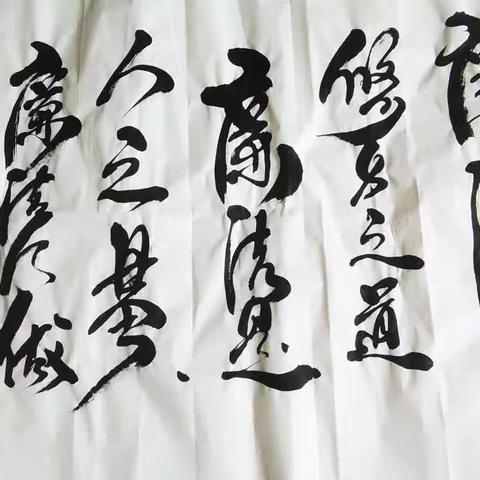 廉洁是做
人之基、
廉洁是
修身之道